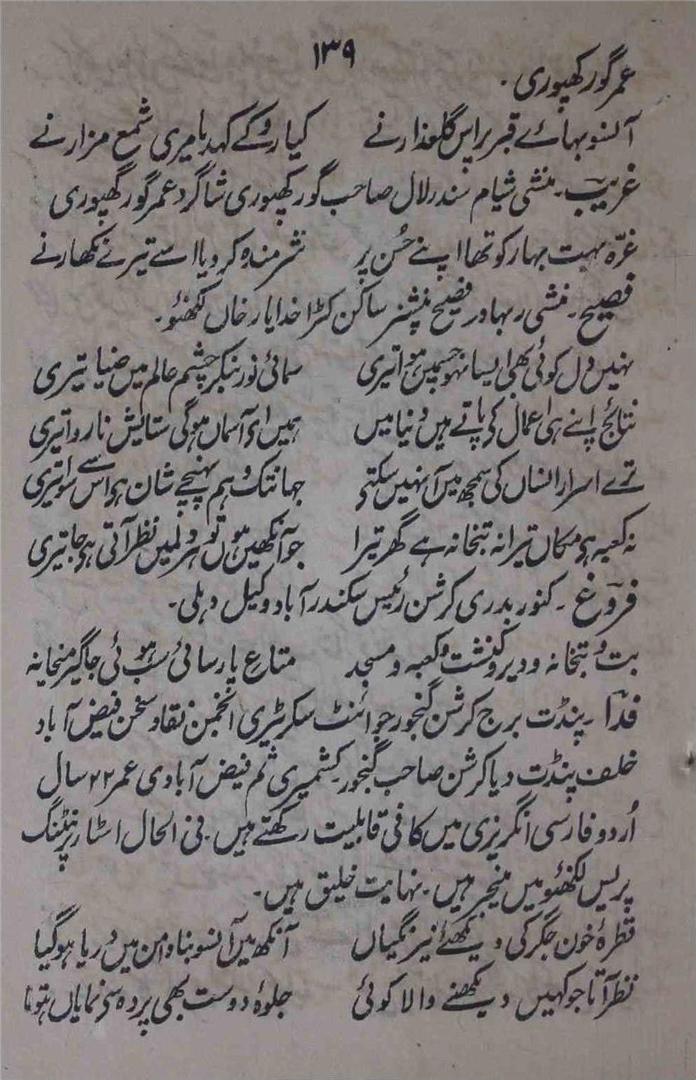 ۱۳۹
عمر گورکھپوری ۔
آنسو بہائے قبر پر اس گلعذار نے کیا روکے کہدیا میری شمع مزار نے
غریب ۔ منشی شیام سندر لال صاحب گورکھپوری شاگرد عمر گورکھپوری
غرّہ بہت بہار کو تھا اپنے حُسن پر شرمندہ کردیا اسے تیرے نکھار نے
فصیح ۔ منشی بہادر فصیح پنشنر ساکن کٹرا خدایار خاں لکھنؤ ۔
نہیں دل کوئی بھی ایسا نہو جسمیں تیری سمائی نور بنکر چشم عالم میں ضیا تیری
نتائج اپنے ہی اعمال کی پاتے ہیں دنیا میں ہمیں اے آسماں ہوگی ستائش ناروا تیری
ترے اسرار انساں کی سمجھ میں آ نہیں سکتے جہانتک وہم پہنچے شان ہو اس سے سوا تیری
نہ کعبہ ہو مکاں تیرا نہ بتخانہ ہے گھر تیرا جو آنکھیں ہوں تو ہر دلمیں نظر آتی ہو جا تیری
فروغ ۔ کنور بدری کرشن رئیس سکندر آباد وکیل دہلی ۔
بت و بتخانہ و دیر و کنشت و کعبہ و مسجد متاع پارسائی سب ہوئی جاگیر میخانہ
فدا ۔ پنڈت برج کرشن گنجور جوائنٹ سکرٹری انجمن نقاد سخن فیض آباد
خلف پنڈت دیا کرشن صاحب گنجور کشمیری ثم فیض آبادی عمر ۲۲ سال
اُردو فارسی انگریزی میں کافی قابلیت رکھتے ہیں ۔ فی الحال اسٹار پرنٹنگ
پریس لکھنؤ میں منیجر ہیں ۔ نہایت خلیق ہیں ۔
قطرۂ خون جگر کی دیکھئے نیرنگیاں آنکھ میں آنسو بنا دامن میں دریا ہوگیا
نظر آتا جو کہیں دیکھنے والا کوئی جلوۂ دوست بھی پردہ سے نمایاں ہوتا